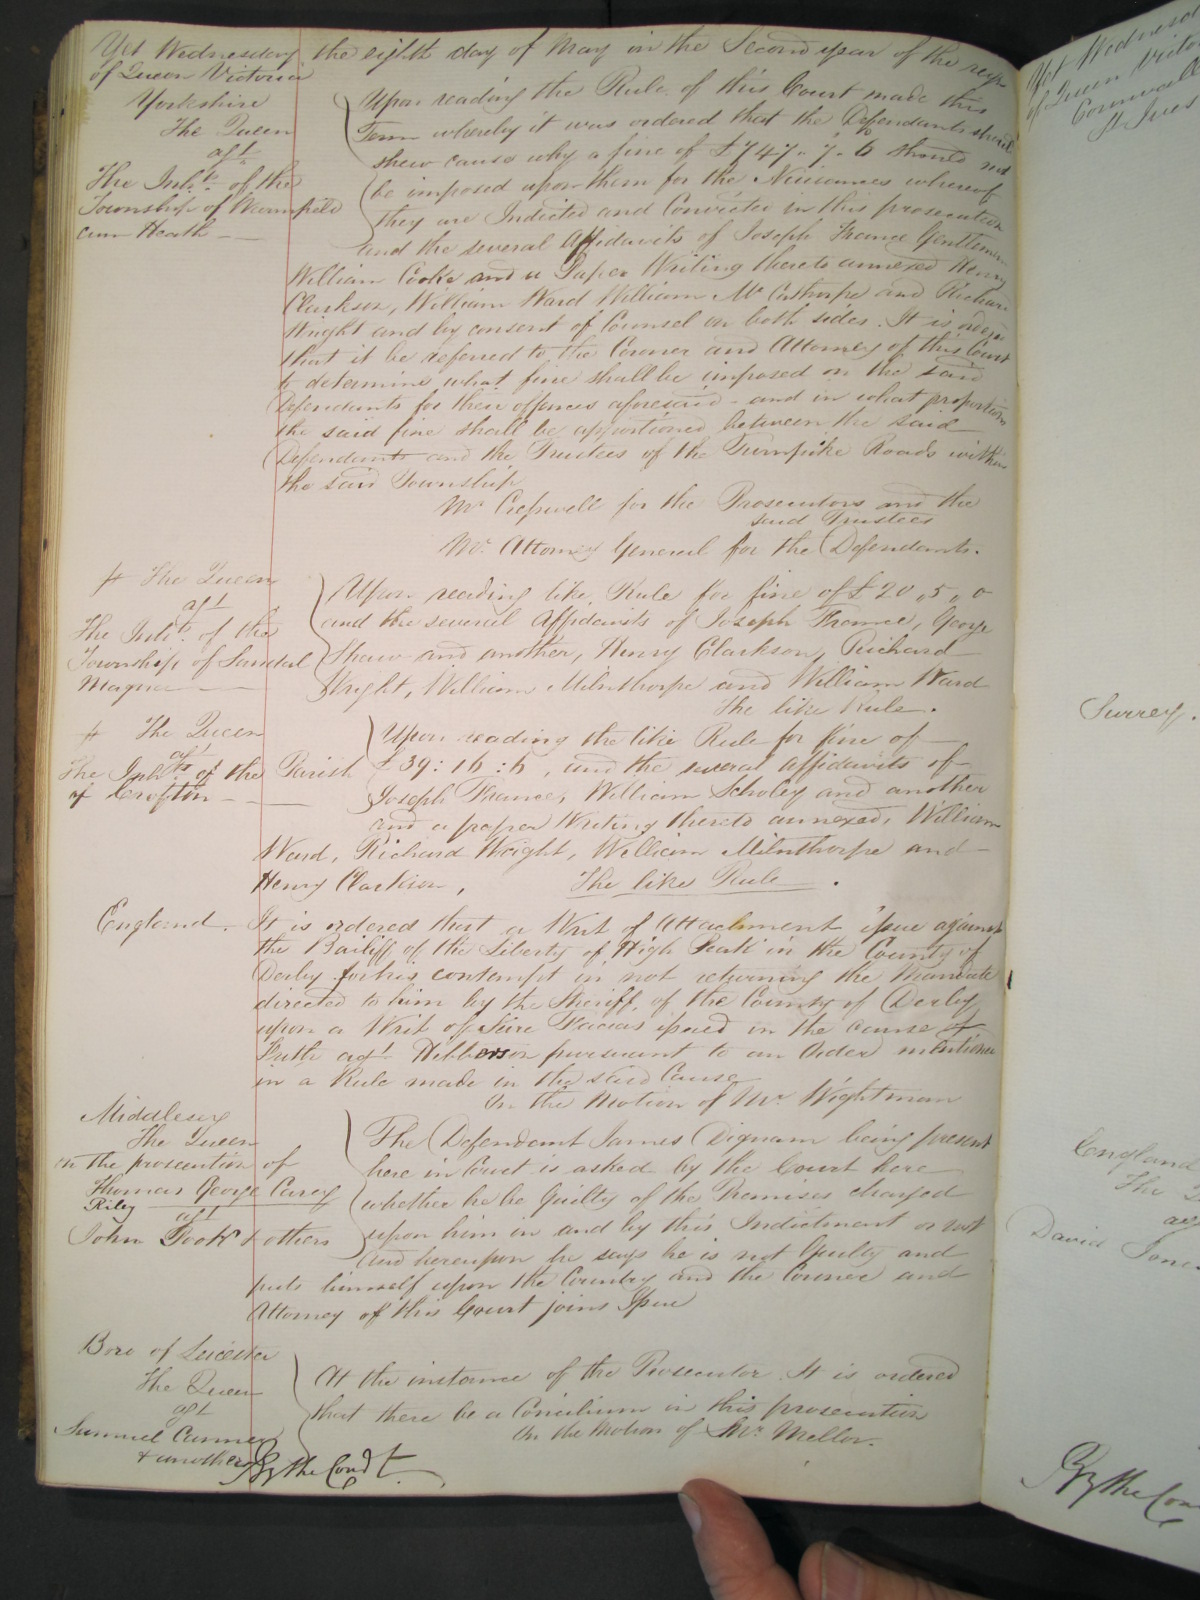 Yet Wednesday the eighth day of May in the Second year of the reign
of Queen Victoria
Yorkshire
The Queen
agt
The Inhts. of the
Township of Warmfield
cum Heath
Upon reading the Rule of this Court made this
Term whereby it was ordered that the Defendants should
shew cause why a fine of £747. 7. 6 should not
be imposed upon them for the Nuisances whereof
they are Indicted and Convicted in this prosecution
and the several Affidavits of Joseph France Gentleman
William Cooke and a Paper Writing thereto annexed Henry
Clarkson, William Ward William Mc Costhorpe and Richard
Wright and by consent of Counsel on both sides. It is ordered
that it be referred to the Coroner and Attorney of this Court
to determine what fine shall be imposed on the said
Defendants for their offences aforesaid and in what proportions
the said fine shall be apportioned between the said
Defendants and the Trustees of the Turnpike Roads within
the said Township
Mr Cresswell for the Prosecutors and the
said Trustees
Mr. Attorney General for the Defendants.
The Queen
agt
The Inhts. of the
Township of Sandal
Magna
Upon reading like Rule for fine of £20,, 5,, 0
and the several Affidavits of Joseph France, George
Shaw and another, Henry Clarkson, Richard
Wright, William Milnthorpe and William Ward
The like Rule.
The Queen
agt
The Inhts. of the Parish
of Crofton
Upon reading the like Rule for fine of
£39: 16: 6, and the several affidavits of
Joseph France, William Scholey and another
and a paper Writing thereto annexed, William
Ward, Richard Wright, William Milnthorpe and
Henry Clarkson, The like Rule.
England. It is ordered that a Writ of Attachment issue against
the Bailiff of the Liberty of High Peak in the County of
Derby for his contempt in not returning the Mandate
directed to him by the Sheriff of the County of Derby
upon a Writ of Fieri Facias issued in the cause of
agt. Hibberson pursuant to an Order mentioned
in a Rule made in the said Cause
On the Motion of Mr Wightman
Middlesex
The Queen
on the prosecution of
Thomas George Carey
Riley
agt
John Cook & others
The Defendant James Dignam being present
here in Court is asked by the Court here
whether he be Guilty of the Premises charged
upon him in and by this Indictment or not
And hereupon he says he is not Guilty and
puts himself upon the Country and the Coroner and
Attorney of this Court joins Issue
Boro of Leicester
The Queen
agt
Samuel
& another
At the instance of the Prosecutor It is ordered
that there be a Concilium in this prosecution
On the Motion of Mr. Mellor.
By the Court.
Yet Wednesday
of Queen Victo
Cornwall
St Ives
Surrey.
England
The Q
ag
David Jone
By the Cou